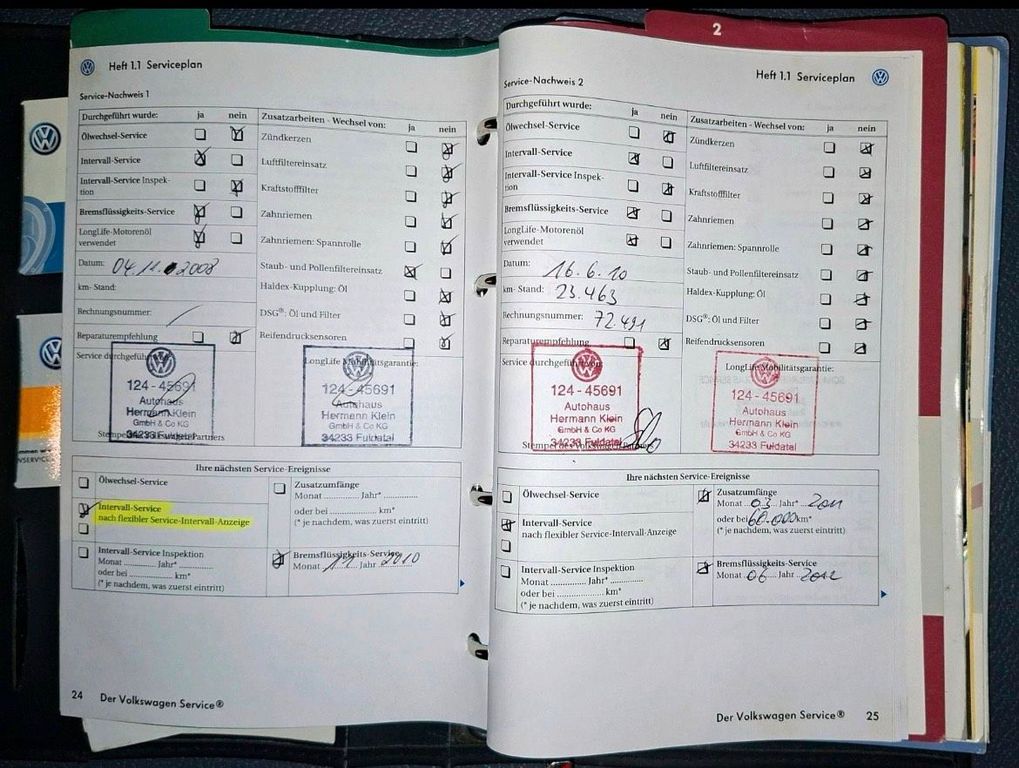 2
Heft 1.1 Serviceplan
Service-Nachweis 1
Durchgeführt wurde: ja nein
Ölwechsel-Service
Intervall-Service
Intervall-Service Inspek-
tion
Bremsflüssigkeits-Service
LongLife-Motorenöl
verwendet
Datum: 04.11.2008
km-Stand:
Rechnungsnummer:
Reparaturempfehlung
Zusatzarbeiten - Wechsel von: ja nein
Zündkerzen
Luftfiltereinsatz
Kraftstofffilter
Zahnriemen
Zahnriemen: Spannrolle
Staub- und Pollenfiltereinsatz
Haldex-Kupplung: Öl
DSG®: Öl und Filter
Reifendrucksensoren
Service durchgeführt
124 - 45691
Autohaus
Hermann Klein
GmbH & Co KG
34233 Fuldatal
LongLife Mobilitätsgarantie:
124 - 45691
Autohaus
Hermann Klein
GmbH & Co KG
34233 Fuldatal
Ihre nächsten Service-Ereignisse
Ölwechsel-Service
Intervall-Service
nach flexibler Service-Intervall-Anzeige
Intervall-Service Inspektion
Monat ............ Jahr* ............
oder bei .................... km*
(* je nachdem, was zuerst eintritt)
Zusatzumfänge
Monat ............ Jahr* ............
oder bei .................... km*
(* je nachdem, was zuerst eintritt)
Bremsflüssigkeits-Service
Monat 11 Jahr 2010
24 Der Volkswagen Service®
Heft 1.1 Serviceplan
Service-Nachweis 2
Durchgeführt wurde: ja nein
Ölwechsel-Service
Intervall-Service
Intervall-Service Inspek-
tion
Bremsflüssigkeits-Service
LongLife-Motorenöl
verwendet
Datum: 16.6.10
km-Stand: 23.463
Rechnungsnummer: 72.491
Reparaturempfehlung
Zusatzarbeiten - Wechsel von: ja nein
Zündkerzen
Luftfiltereinsatz
Kraftstofffilter
Zahnriemen
Zahnriemen: Spannrolle
Staub- und Pollenfiltereinsatz
Haldex-Kupplung: Öl
DSG®: Öl und Filter
Reifendrucksensoren
Service durchgeführt
124 - 45691
Autohaus
Hermann Klein
GmbH & Co KG
34233 Fuldatal
Stempel des Volkswagen Partners
LongLife Mobilitätsgarantie:
124 - 45691
Autohaus
Hermann Klein
GmbH & Co KG
34233 Fuldatal
Ihre nächsten Service-Ereignisse
Ölwechsel-Service
Intervall-Service
nach flexibler Service-Intervall-Anzeige
Intervall-Service Inspektion
Monat ............ Jahr* ............
oder bei .................... km*
(* je nachdem, was zuerst eintritt)
Zusatzumfänge
Monat 03 Jahr* 2011
oder bei 60.000 km*
(* je nachdem, was zuerst eintritt)
Bremsflüssigkeits-Service
Monat 06 Jahr 2012
Der Volkswagen Service® 25